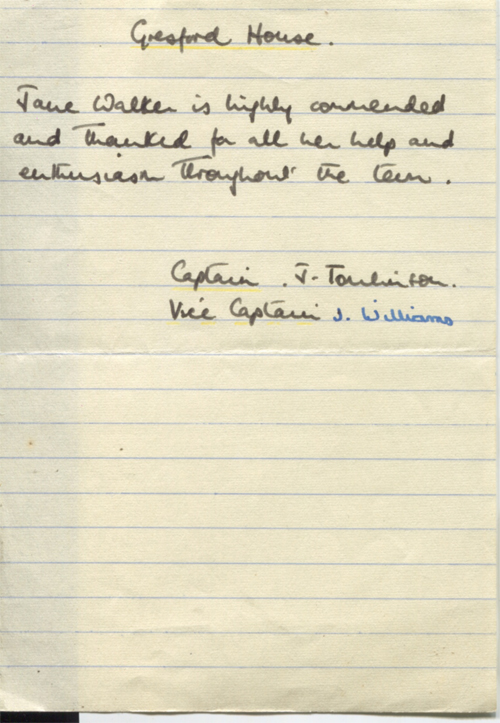 Gresford House.
Jane Walker is highly commended
and thanked for all her help and
enthusiasm throughout the term.
Captain . J. Tomlinson.
Vice Captain J. Williams